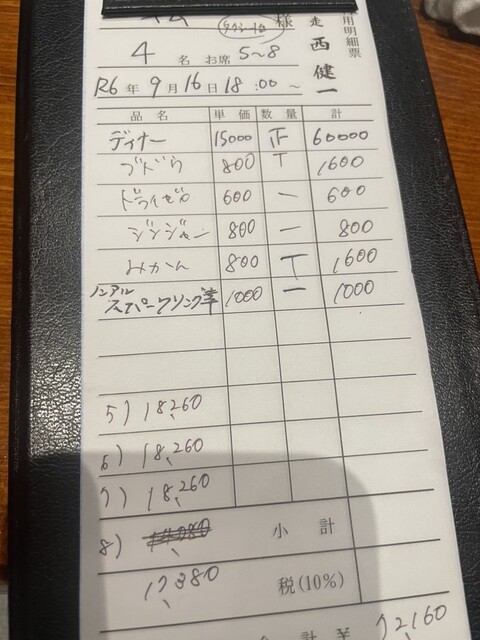 様
用明細票
走 西 健一
4 名 お席 5~8
R6 年 9 月 16 日 18:00~
品名 単価 数量 計
ディナー 15000 正 60000
ブドウ 800 T 1600
ドライゼロ 600 一 600
ジンジャー 800 一 800
みかん 800 T 1600
ノンアル
スパークリング 1000 一 1000
5) 18,260
6) 18,260
7) 18,260
8) 小計
17,380 税(10%)
計 ¥ 72,160